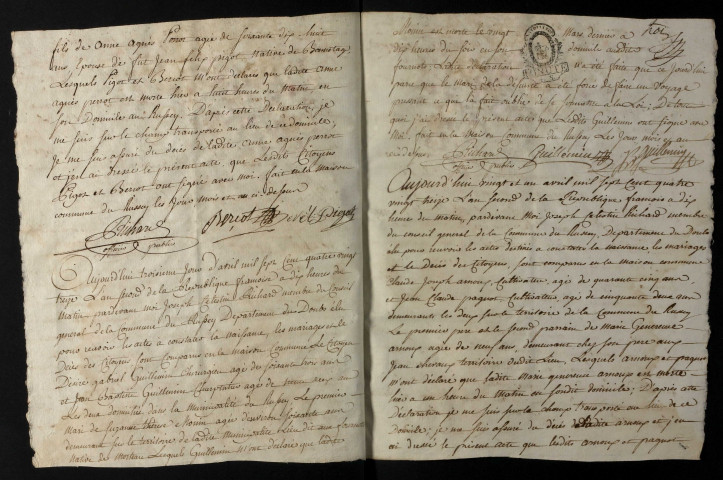 fils de Anne agnès Perrot agée de soixante dix huit
ans Epouse de fut Jean felix pigot Native de
Lesquels Pigot et Beriot M'ont déclaré que ladite anne
agnès perrot est morte hier a huit heures du Matin, en
son Domicile au Russey. D'après cette Declaration, je
me suis sur le champ transporté au lieu de ce domicile,
Je me suis assuré du décès de ladite, agnès perrot
et j'ai dressé le présent acte, que Lesdits Citoyens
Pigot et Beriot ont signé avec moi. fait en la maison
commune du Russey les Jour mois et an ci dessus
Richard Beriot Pigot
officier public
Aujourd'hui troisieme Jour d'avril mil sept Cent quatre vingt
treize L'an second de la Republique francoise a dix heures du
Matin pardevant moi Joseph Celestin Richard membre du Conseil
general de la Commune du Russey Departement du Doubs élu
pour recevoir les actes a constater la naissance, les mariages et le
Décès des Citoyens sont Comparus en la maison Commune Le Citoyen
Denis gabriel Guillemin Chirurgien agé de soixante trois ans
et Jean Baptiste Guillemin Charpentier agé de trente deux ans
Les deux domiciliés dans la municipalité du Russey Le premier
Mari de Suzanne Therese agée d'environ soixante ans
demeurant sur le territoire de ladite Municipalité Lieu dit
native de Morteau Lesquels Guillemin M'ont déclaré que ladite
est morte le vingt Mars dernier a
dix heures du soir en son domicile audit
Laditte déclaration N'a été faite que ce Jourd'hui
parce que le mari de la défunte a été forcé de faire un Voyage
avant ce que la fait oublier de se soumettre a la Loi; De tout
quoi j'ai dressé le present acte que Lesdits Guillemin ont signé avec
Moi, fait en la Maison Commune du Russey Les Jour, mois et an
ci dessus. Richard Guillemin JB guillemin
officier public
Aujourd'hui vingt et un avril mil sept Cent quatre
vingt treize L'an second de la Republique francoise a dix
heures du matin, pardevant Moi Joseph Celestin Richard membre
du conseil general de la Commune du Russey, Departement du Doubs
élu pour recevoir les actes destinés a constater la naissance les mariages
et le décès des Citoyens sont comparus en la maison commune
Claude Joseph arnoux Cultivateur, agé de quarante cinq ans
et Jean Claude paquot Cultivateur agé de cinquante deux ans
demeurants les deux sur le territoire de la Commune du Russey
Le premier père et le second parrain de Marie Genevieve
arnoux agée de neuf ans, demeurant chez son père aux
Jean chevaux territoire dudit Lieu, Lesquels arnoux et paquot
M'ont déclaré que ladite Marie genevieve arnoux est morte
hier a un heure du Matin en sondit domicile; D'après cette
déclaration je me suis sur le champ transporté au lieu de ce
domicile; je me suis assuré du décès de ladite arnoux et j'en
ai dressé le présent acte que lesdits arnoux et paquot